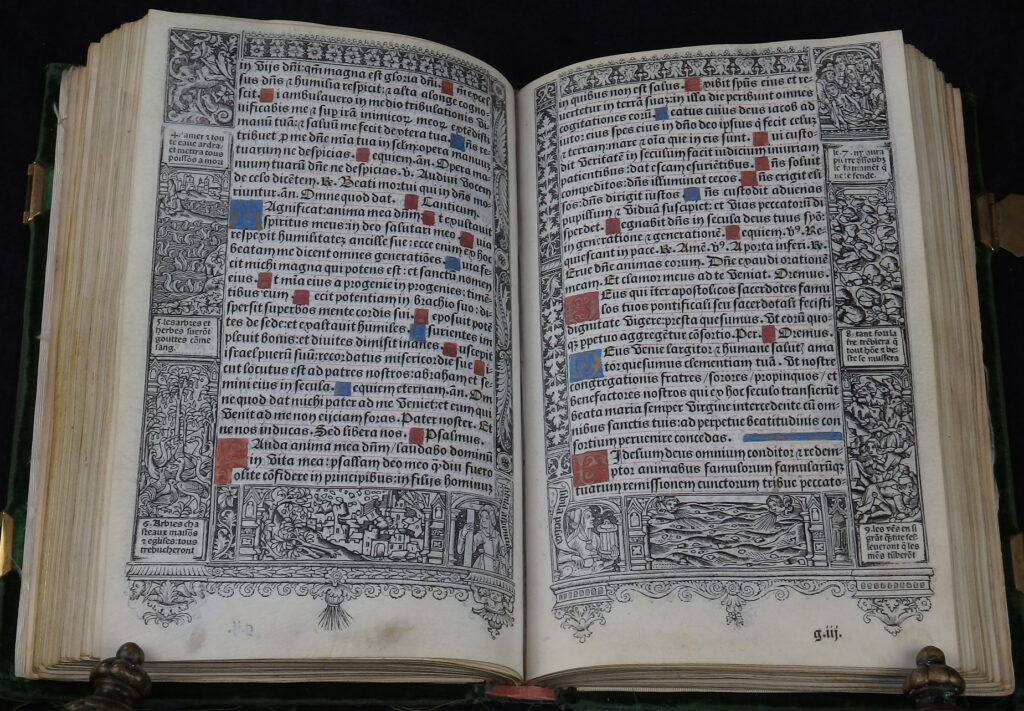 in vijs dñi: qm̃ magna est gloria dñi. Qm̃ excel
sus dñs & humilia respicit: & alta a longe cogno-
scit. Si ambulauero in medio tribulationis vi-
uificabis me: & sup irã inimicorꝝ meorꝝ extẽdisti
manũ tuã: & saluũ me fecit dextera tua. Dñs re-
tribuet ꝓ me dñe mĩa tua in sclm: opera manuũ
tuarum ne despicias. Requiem. añ. Opera ma-
nuum tuarũ dñe ne despicias. V. Audiui vocem
de celo dicẽtem. R. Beati mortui qui in dño mo-
riuntur. añ. Omne quod dat. Canticum.
Magnificat: anima mea dñm. Et exultauit
spiritus meus: in deo salutari meo. Quia
respexit humilitatem ancille sue: ecce enim ex hoc
beatam me dicent omnes generatiões. Quia fe-
cit michi magna qui potens est: et sanctũ nomen
eius. Et mĩa eius a progenie in progenies: timẽ-
tibus eum. Fecit potentiam in brachio suo: di-
spersit superbos mente cordis sui. Deposuit potẽ
tes de sede: et exaltauit humiles. Esurientes im
pleuit bonis: et diuites dimisit inanes. Suscepit
israel puerũ suũ: recordatus misericordie sue. Si
cut locutus est ad patres nostros: abraham et se-
mini eius in secula. Requiem eternam. añ. Om
ne quod dat michi pater ad me veniet: et eum qui
venit ad me non eijciam foras. Pater noster. Et
ne nos inducas. Sed libera nos. Psalmus.
Lauda anima mea dñm / laudabo dominũ
in vita mea: psallam deo meo q̃ diu fuero
Nolite cõfidere in principibus: in filijs hominuz
4. lamer & tou
te eaue ardra,
et mettra tous
poissõs a mort
5. les arbres et
herbes suerõt
gouttes cõme
sang.
6. Arbres cha
steaux maisõs
& eglises: tous
trebucheront
in quibus non est salus. Exibit spũs eius et re-
uertetur in terrã suam: in illa die peribunt omnes
cogitationes eorũ. Beatus cuius deus iacob ad
iutor eius spes eius in dño deo ipsius: q̃ fecit celuz
& terram: mare & oĩa que in eis sunt. Qui custo-
dit veritatẽ in seculum facit iudicium iniuriam
patientibus: dat escam esuriẽtibus. Dñs soluit
compeditos: dñs illuminat cecos. Dñs erigit eli
sos: dñs dirigit iustos. Dñs custodit aduenas
pupillum & viduã suscipiet: et vias peccatorũ di-
sperdet. Regnabit dñs in secula deus tuus syõ:
in generatione & generationẽ. Requiem. v9. Re
quescant in pace. R. Amẽ. V9. A porta inferi. R.
Erue dñe animas eorum. Dñe exaudi orationẽ
meam. Et clamor meus ad te veniat. Oremus.
Deus qui iter apostolicos sacerdotes famu
los tuos pontificali seu sacerdotali fecisti
dignitate vigere: presta quesumus. Vt eorũ quoqꝫ
ꝑpetuo aggregẽtur cõsortio. Per. Oremus.
Deus venie largitor & humane salut̃ ama
tor quesumus clementiam tuã. Vt nostre
congregationis fratres / sorores / propinquos / et
benefactores nostros que ex hoc seculo transierũt
beata maria semper virgine intercedente cũ om-
nibus sanctis tuis: ad perpetue beatitudinis con
sortium peruenire concedas.
Fidelium deus omnium conditor & redem
ptor animabus famulorum famularũqꝫ
tuarum remissionem cunctorum tribue peccato-
le. 7. ny aura
pierre soubz
le firmamẽt q̃
ne se fende.
8. tant fou la
tre trẽblera q̃
tout hõe & be
ste se mussera
9. les vẽs en si
grãt q̃nte sesleueront q̃ les
mõs tũberõt
g.iij.